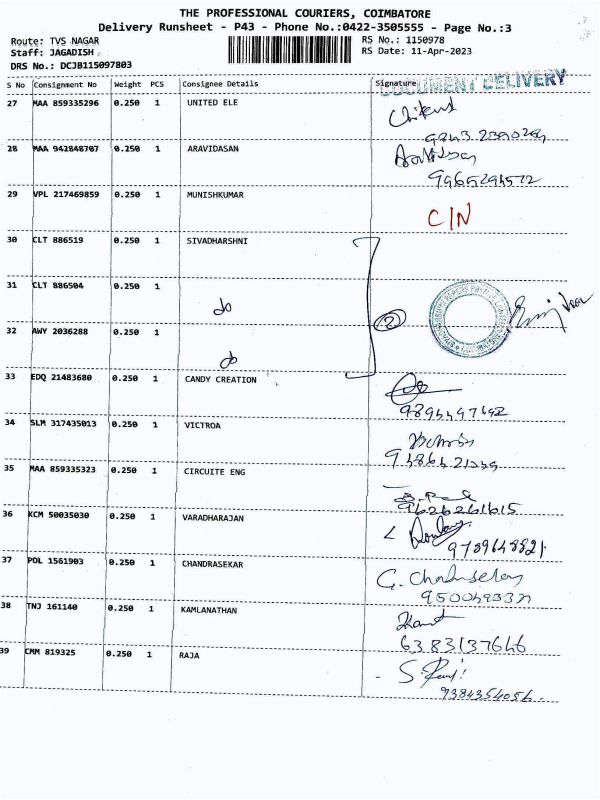 THE PROFESSIONAL COURIERS, COIMBATORE
Delivery Runsheet - P43 - Phone No.:0422-3505555 - Page No.:3
Route: TVS NAGAR
RS No.: 1150978
Staff: JAGADISH
RS Date: 11-Apr-2023
DRS No.: DCJB115097803
S No Consignment No Weight PCS Consignee Details Signature
DOCUMENT DELIVERY
27 MAA 859335296 0.250 1 UNITED ELE
28 MAA 942848707 0.250 1 ARAVIDASAN
9965294572
29 VPL 217469859 0.250 1 MUNISHKUMAR
C/N
30 CLT 886519 0.250 1 SIVADHARSHNI
31 CLT 886504 0.250 1
do
2
32 AWY 2036288 0.250 1
do
33 EDQ 21483680 0.250 1 CANDY CREATION
34 SLM 317435013 0.250 1 VICTROA
35 MAA 859335323 0.250 1 CIRCUITE ENG
9626261615
36 KCM 50035030 0.250 1 VARADHARAJAN
9789648821
37 POL 1561903 0.250 1 CHANDRASEKAR
G. Chandrasekar
38 TNJ 161140 0.250 1 KAMLANATHAN
6383137646
39 CMM 819325 0.250 1 RAJA
9384354056